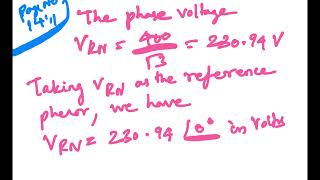 Page No
14.11
The phase voltage
V_RN = 400/√3 = 230.94 V
Taking V_RN as the reference
phasor, we have
V_RN = 230.94 ∠0° in volts